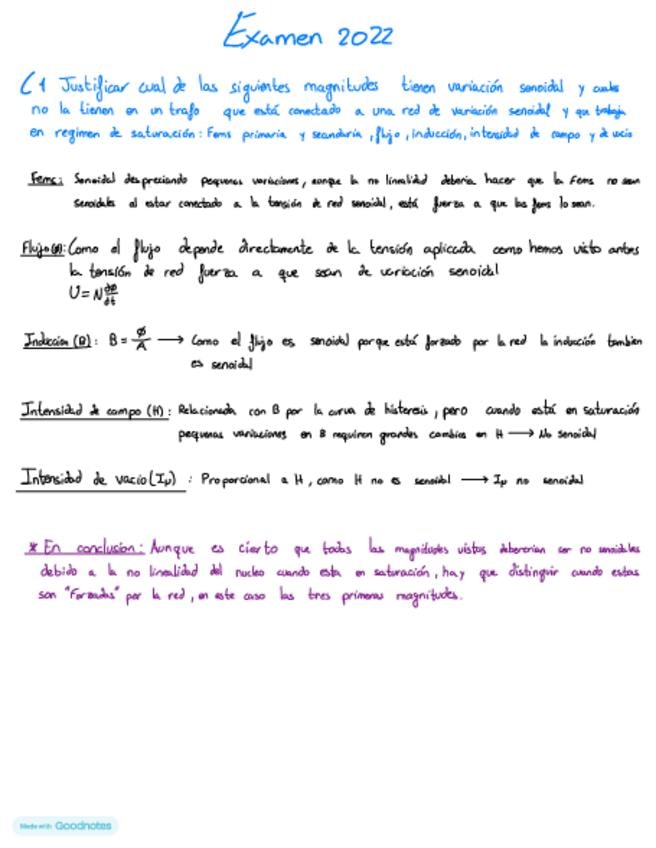 Examen 2022
C1 Justificar cual de las siguientes magnitudes tienen variación senoidal y cuales
no la tienen en un trafo que está conectado a una red de variación senoidal y que trabaja
en regimen de saturación: Fems primaria y secundaria, flujo, inducción, intensidad de campo y de vacio
Fems: Senoidal despreciando pequenas variaciones, aunque la no linealidad deberia hacer que la Fems no sean
senoidales al estar conectado a la tensión de red senoidal, está fuerza a que las fems lo sean.
Flujo(Ø): Como el flujo depende directamente de la tensión aplicada como hemos visto antes
la tensión de red fuerza a que sean de variación senoidal
U = N dØ/dt
Inducción (B): B = Ø/A → Como el flujo es senoidal porque está forzado por la red la inducción tambien
es senoidal
Intensidad de campo (H): Relacionada con B por la curva de histeresis, pero cuando está en saturación
pequenas variaciones en B requiren grandes cambios en H → No senoidal
Intensidad de vacío (Iμ) : Proporcional a H, como H no es senoidal → Iμ no senoidal
* En conclusion: Aunque es cierto que todas las magnitudes vistas ser no senoidales
debido a la no linealidad del nucleo cuando esta en saturación, hay que distinguir cuando estas
son "Forzadas" por la red, en este caso las tres primeras magnitudes.
Made with Goodnotes